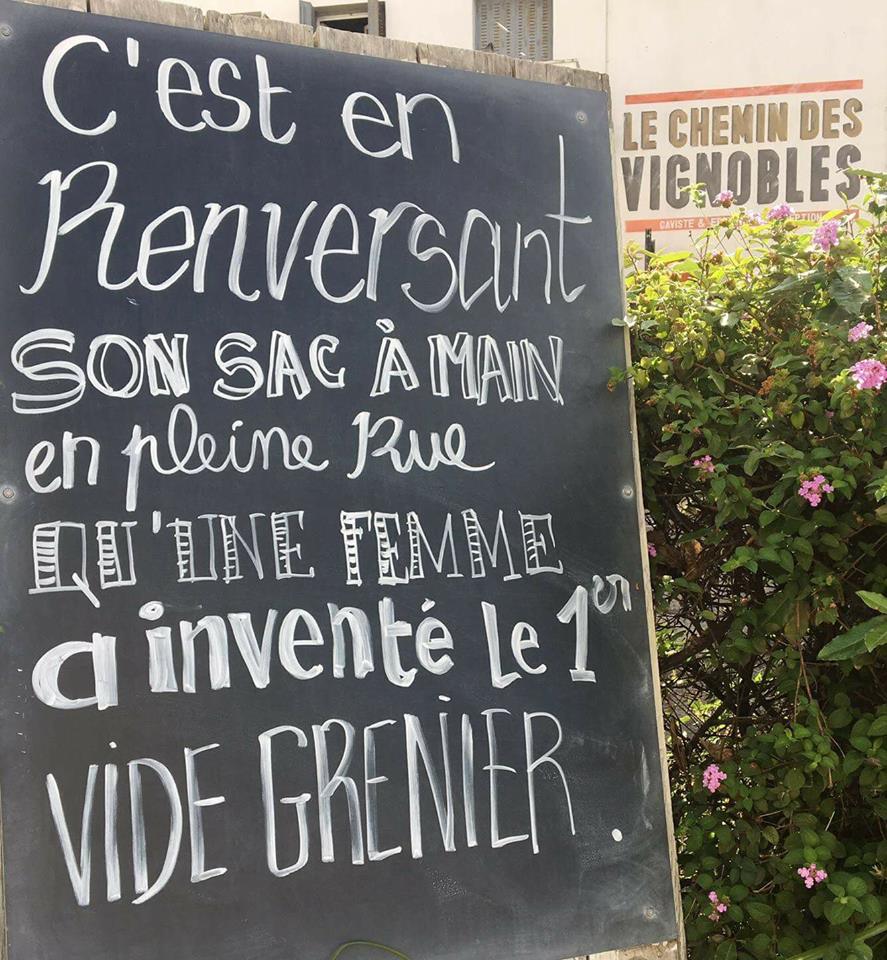 C'est en
Renversant
SON SAC À MAIN
en pleine Rue
QU'UNE FEMME
a inventé le 1er
VIDE GRENIER.
LE CHEMIN DES
VIGNOBLES
CAVISTE &